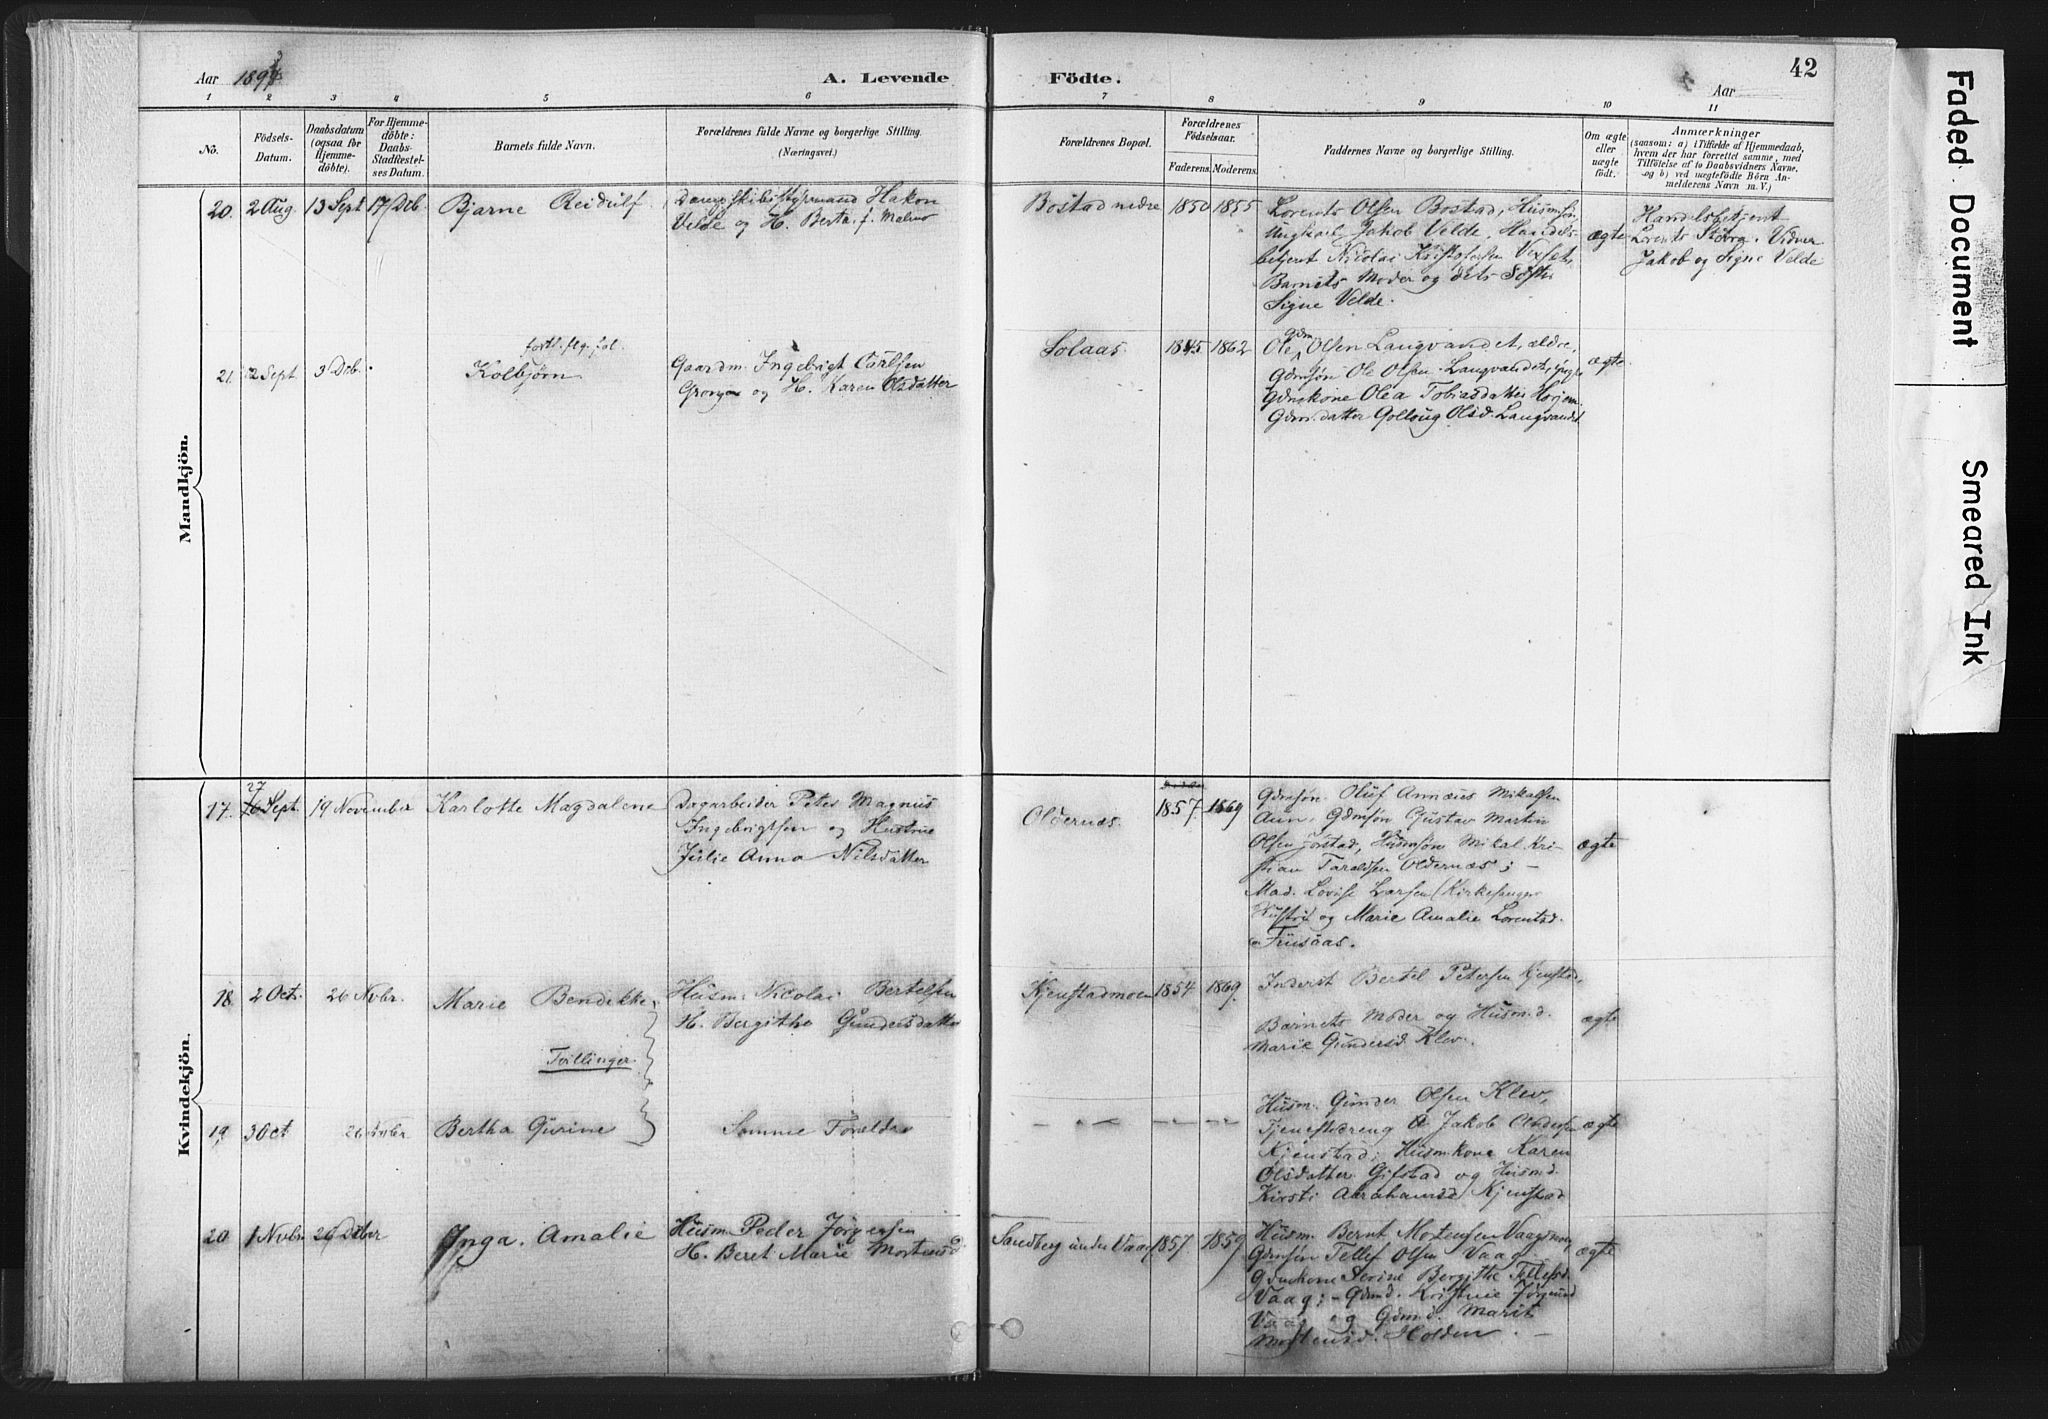 Aar 1897
A. Levende
Födte.
42
Aar
1 2 3 4 5 6 7 8 9 10 11
No.
Födsels-
Datum.
Daabsdatum
(ogsaa for
Hjemme-
döbte).
For Hjemme-
döbte:
Daabs-
Stadfæstel-
ses Datum.
Barnets fulde Navn.
Forældrenes fulde Navne og borgerlige Stilling.
(Næringsvei.)
Forældrenes Bopæl.
Forældrenes
Födselsaar.
Faderens. Moderens.
Faddernes Navne og borgerlige Stilling.
Om ægte
eller
uægte
født.
Anmærkninger
(saasom: a) i Tilfælde af Hjemmedaab,
hvem der har forrettet samme, med
Tilföielse af to Daabsvidners Navne,
og b) ved uægtefödte Börn An-
melderens Navn m. V.)
Mandkjön.
20. 2 Aug. 13 Sept 17 Dcb. Bjarne Reidulf
Dampskibsstyrmand Hakon
Velde og H. Berta f. Malmo
Bostad nedre 1850 1855
Lorents Olsen Bostad, Husmsön
Ungkarl Jakob Velde, Handels-
betjent Nicolai Kristofersen Vexset,
Barnets Moder og dets Söster
Signe Velde.
ægte
Handelsbetjent
Lorents Vidner
Jakob og Signe Velde
21. 2 Sept. 3 Dcb.
fortl. flg. fol.
Kolbjørn
Gaardm. Ingebrigt Carlsen
og H. Karen Olsdatter
Solaas. 1845 1862
Gdm
Ole Olsen Langvandet, ældre,
Gdmsøn Ole Olsen Langvandet, yngre
Gdmskone Olea Tobiasdatter
Gdm.datter Gollaug Olsd. Langvandet
ægte
Kvindekjön.
17. 27 Sept. 19 November Karlotte Magdalene
Dagarbeider Peter Magnus
Ingebrigtsen og Hustrue
Julie Anna Nilsdatter
Oldernæs. 1857. 1869
Gdmsøn. Oluf Annæus Mikalsen
Aun, Gdmsøn Gustav Martin
Olsen Jørstad, Husmsøn Mikal Kri-
stian Taraldsen Oldernæs; -
Mad. Lovise Larsen (Kirkesanger
Hustru og Marie Amalie Lorentsd.
Fuusaas.
ægte
18. 2 Oct. 26 Nvbr. Marie Bendikke
Husm. Nicolai Bertelsen
H. Bergithe Gundersdatter
Tvillinger
Kjenstadmoen 1854 1869.
Inderst Bertel Petersen Kjenstad,
Barnets Moder og Husm.d.
Marie Gundersd Klev.
ægte
19 3 Oct 26 Nvbr Bertha Gurine
Samme Foreldre
— „ — — „ — — „ —
Husm. Gunder Olsen Klev,
Tjenestedreng O Jakob Andersen
Kjenstad; Husm.kone Karen
Olsdatter Gifstad og Husm.d.
Kirsti Abrahamsd Kjenstad
ægte
20 1 Nvbr. 26 Dcber Inga. Amalie
Husm Peder Jørgensen
H. Beret Marie Mortensd
Sandberg under Vaag 1857 1859
Husm. Bernt Mortensen
Gdmsøn Tellef Olsen Vaag
Gdmkone Serine Bergithe Tellefsd.
Vaag; - Gdmd. Kristine Jørgensd
Vaag og Gdmd. Marit
Mortensd. Holden. —
ægte
Faded Document
Smeared Ink